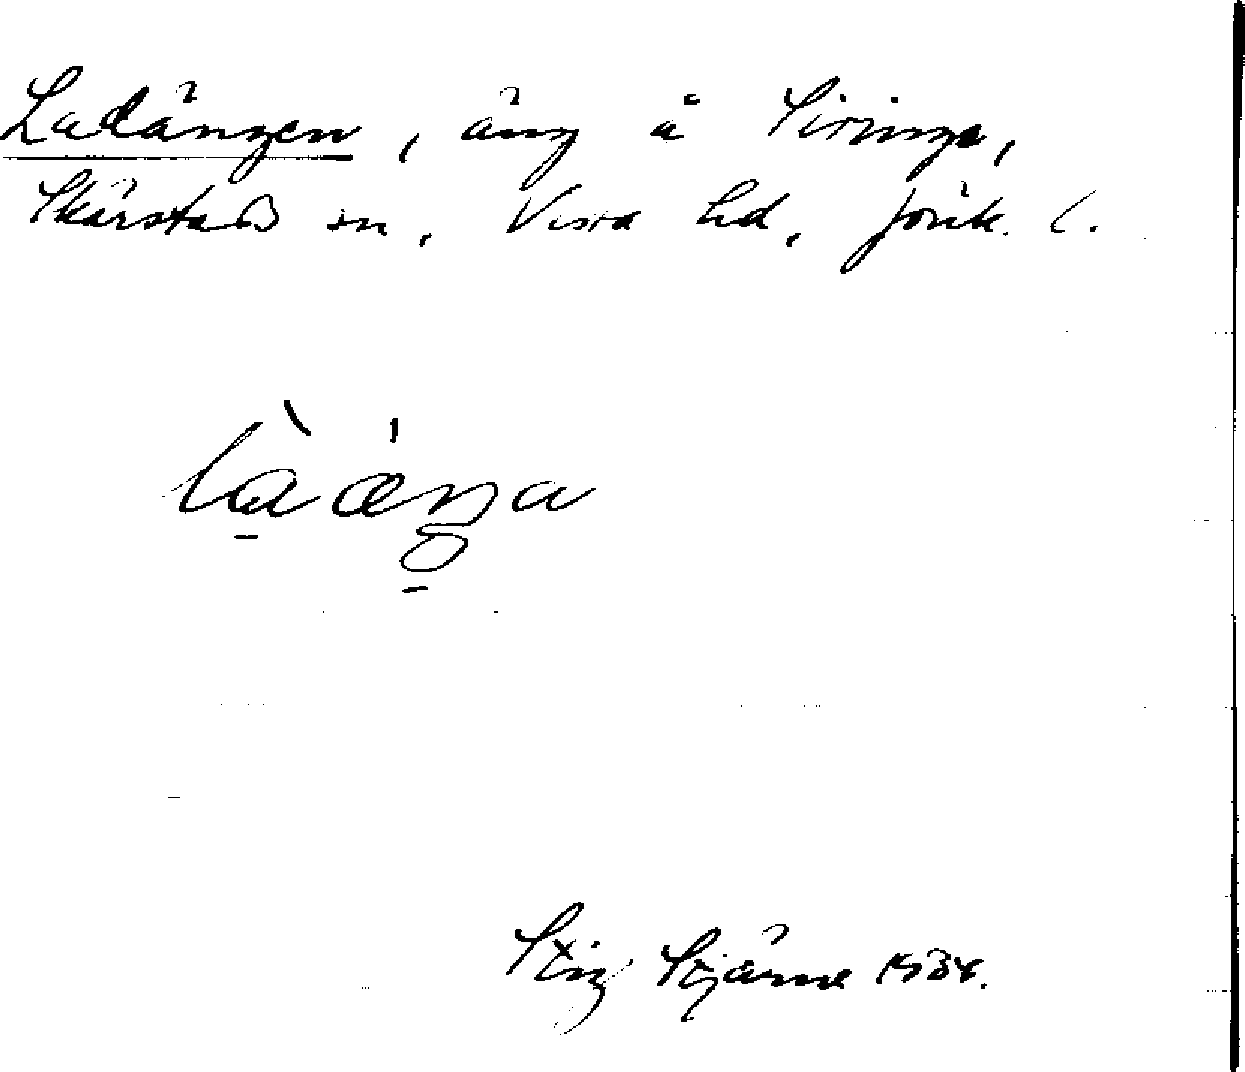 Ladängen, äng å Siringe,
Skärstads sn, Vista hd, Jönk. l.
làæŋa
Stig Stjärne 1934.